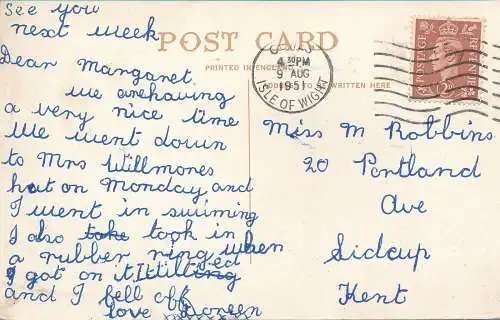 See you
next week
POST CARD
PRINTED IN ENGLAND
WRITTEN HERE
4 30 PM
9 AUG
1951
ISLE OF WIGHT
POSTAGE
Dear Margaret
we are having
a very nice time
We went down
to Mrs Willmores
hut on Monday and
I went in swiming
I also took in
a rubber ring when
I got on it it
and I fell off
love Doreen
Miss M Robbins
20 Portland
Ave
Sidcup
Kent